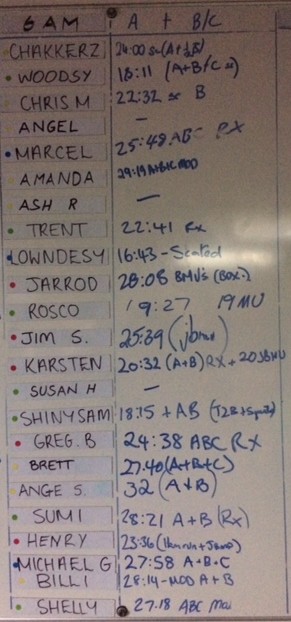 6 AM A + B/C
CHAKKERZ 24:00 (A+B)
WOODSY 18:11 (A+B/C)
CHRIS M 22:32 sc B
ANGEL —
MARCEL 25:48 ABC RX
AMANDA 29:19 A+B+C MOD
ASH R —
TRENT 22:41 Rx
LOWNDESY 16:43 - Scaled
JARROD 28:08 BMU's (Box.)
ROSCO 19:27 19 MU
JIM S. 25:39
KARSTEN 20:32 (A+B) RX + 20
SUSAN H —
SHINYSAM 18:15 + AB
GREG. B 24:38 ABC RX
BRETT 27:40 (A+B+C)
ANGE S. 32 (A+B)
SUMI 28:21 A+B (Rx)
HENRY 23:36
MICHAEL G 27:58 A+B+C
BILLI 28:14 - MOD A+B
SHELLY 27:18 ABC